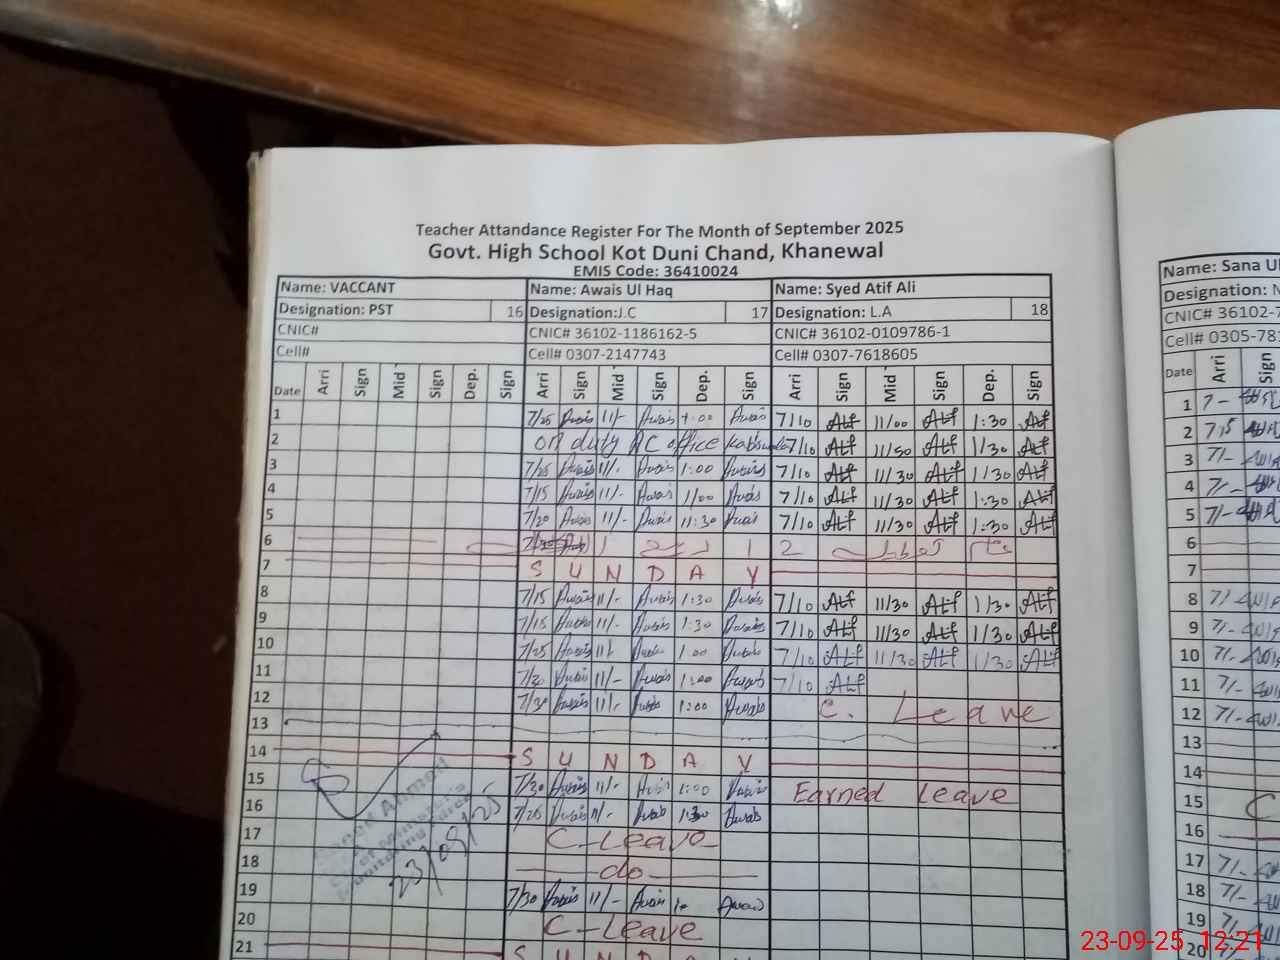 Teacher Attandance Register For The Month of September 2025
Govt. High School Kot Duni Chand, Khanewal
EMIS Code: 36410024
Name: VACCANT Name: Awais Ul Haq Name: Syed Atif Ali
Designation: PST 16 Designation:J.C 17 Designation: L.A 18
CNIC# CNIC# 36102-1186162-5 CNIC# 36102-0109786-1
Cell# Cell# 0307-2147743 Cell# 0307-7618605
Date Arri Sign Mid Sign Dep. Sign Arri Sign Mid Sign Dep. Sign Arri Sign Mid Sign Dep. Sign
1 7/25 Awais 11/- Awais Awais 7/10 Atf 11/00 Atf 1:30 Atf
2 on duty AC office 7/10 Atf 11/30 Atf 1/30 Atf
3 Awais 11/- Awais 1:00 Awais 7/10 Atf 11/30 Atf 1/30 Atf
4 7/15 Awais 11/- Awais 1/00 Awais 7/10 Atf 11/30 Atf 1:30 Atf
5 7/20 Awais 11/- Awais 11:30 Awais 7/10 Atf 11/30 Atf 1:30 Atf
6
7 S U N D A Y
8 7/15 Awais 11/- Awais 1:30 Awais 7/10 Atf 11/30 Atf 1/30 Atf
9 7/15 Awais 11/- Awais 1:30 Awais 7/10 Atf 11/30 Atf 1/30 Atf
10 7/25 Awais 11/- Awais 1:00 Awais 7/10 Atf 11/30 Atf 1/30 Atf
11 7/30 Awais 11/- Awais 1:00 Awais 7/10 Atf
12 7/30 Awais 11/- Awais 1:00 Awais C. Leave
13
14 S U N D A Y
15 7/30 Awais 11/- Awais 1:00 Awais Earned Leave
16 7/25 Awais 11/- Awais 1:30 Awais
17 C-Leave
18 do
19 7/30 Awais 11/- Awais Awais
20 C-Leave
21 S U N D A Y
23/09/25
Name: Sana Ul
Designation:
CNIC# 36102-7
Cell# 0305-781
Date Arri Sign
1 7-
2 7/5
3 7/-
4 7/-
5 7/-
6
7
8 7/-
9 7/-
10 7/-
11 7/-
12 7/-
13
14
15 C
16
17 7/-
18 7/-
19 7/-
20 7/-
23-09-25 12:21